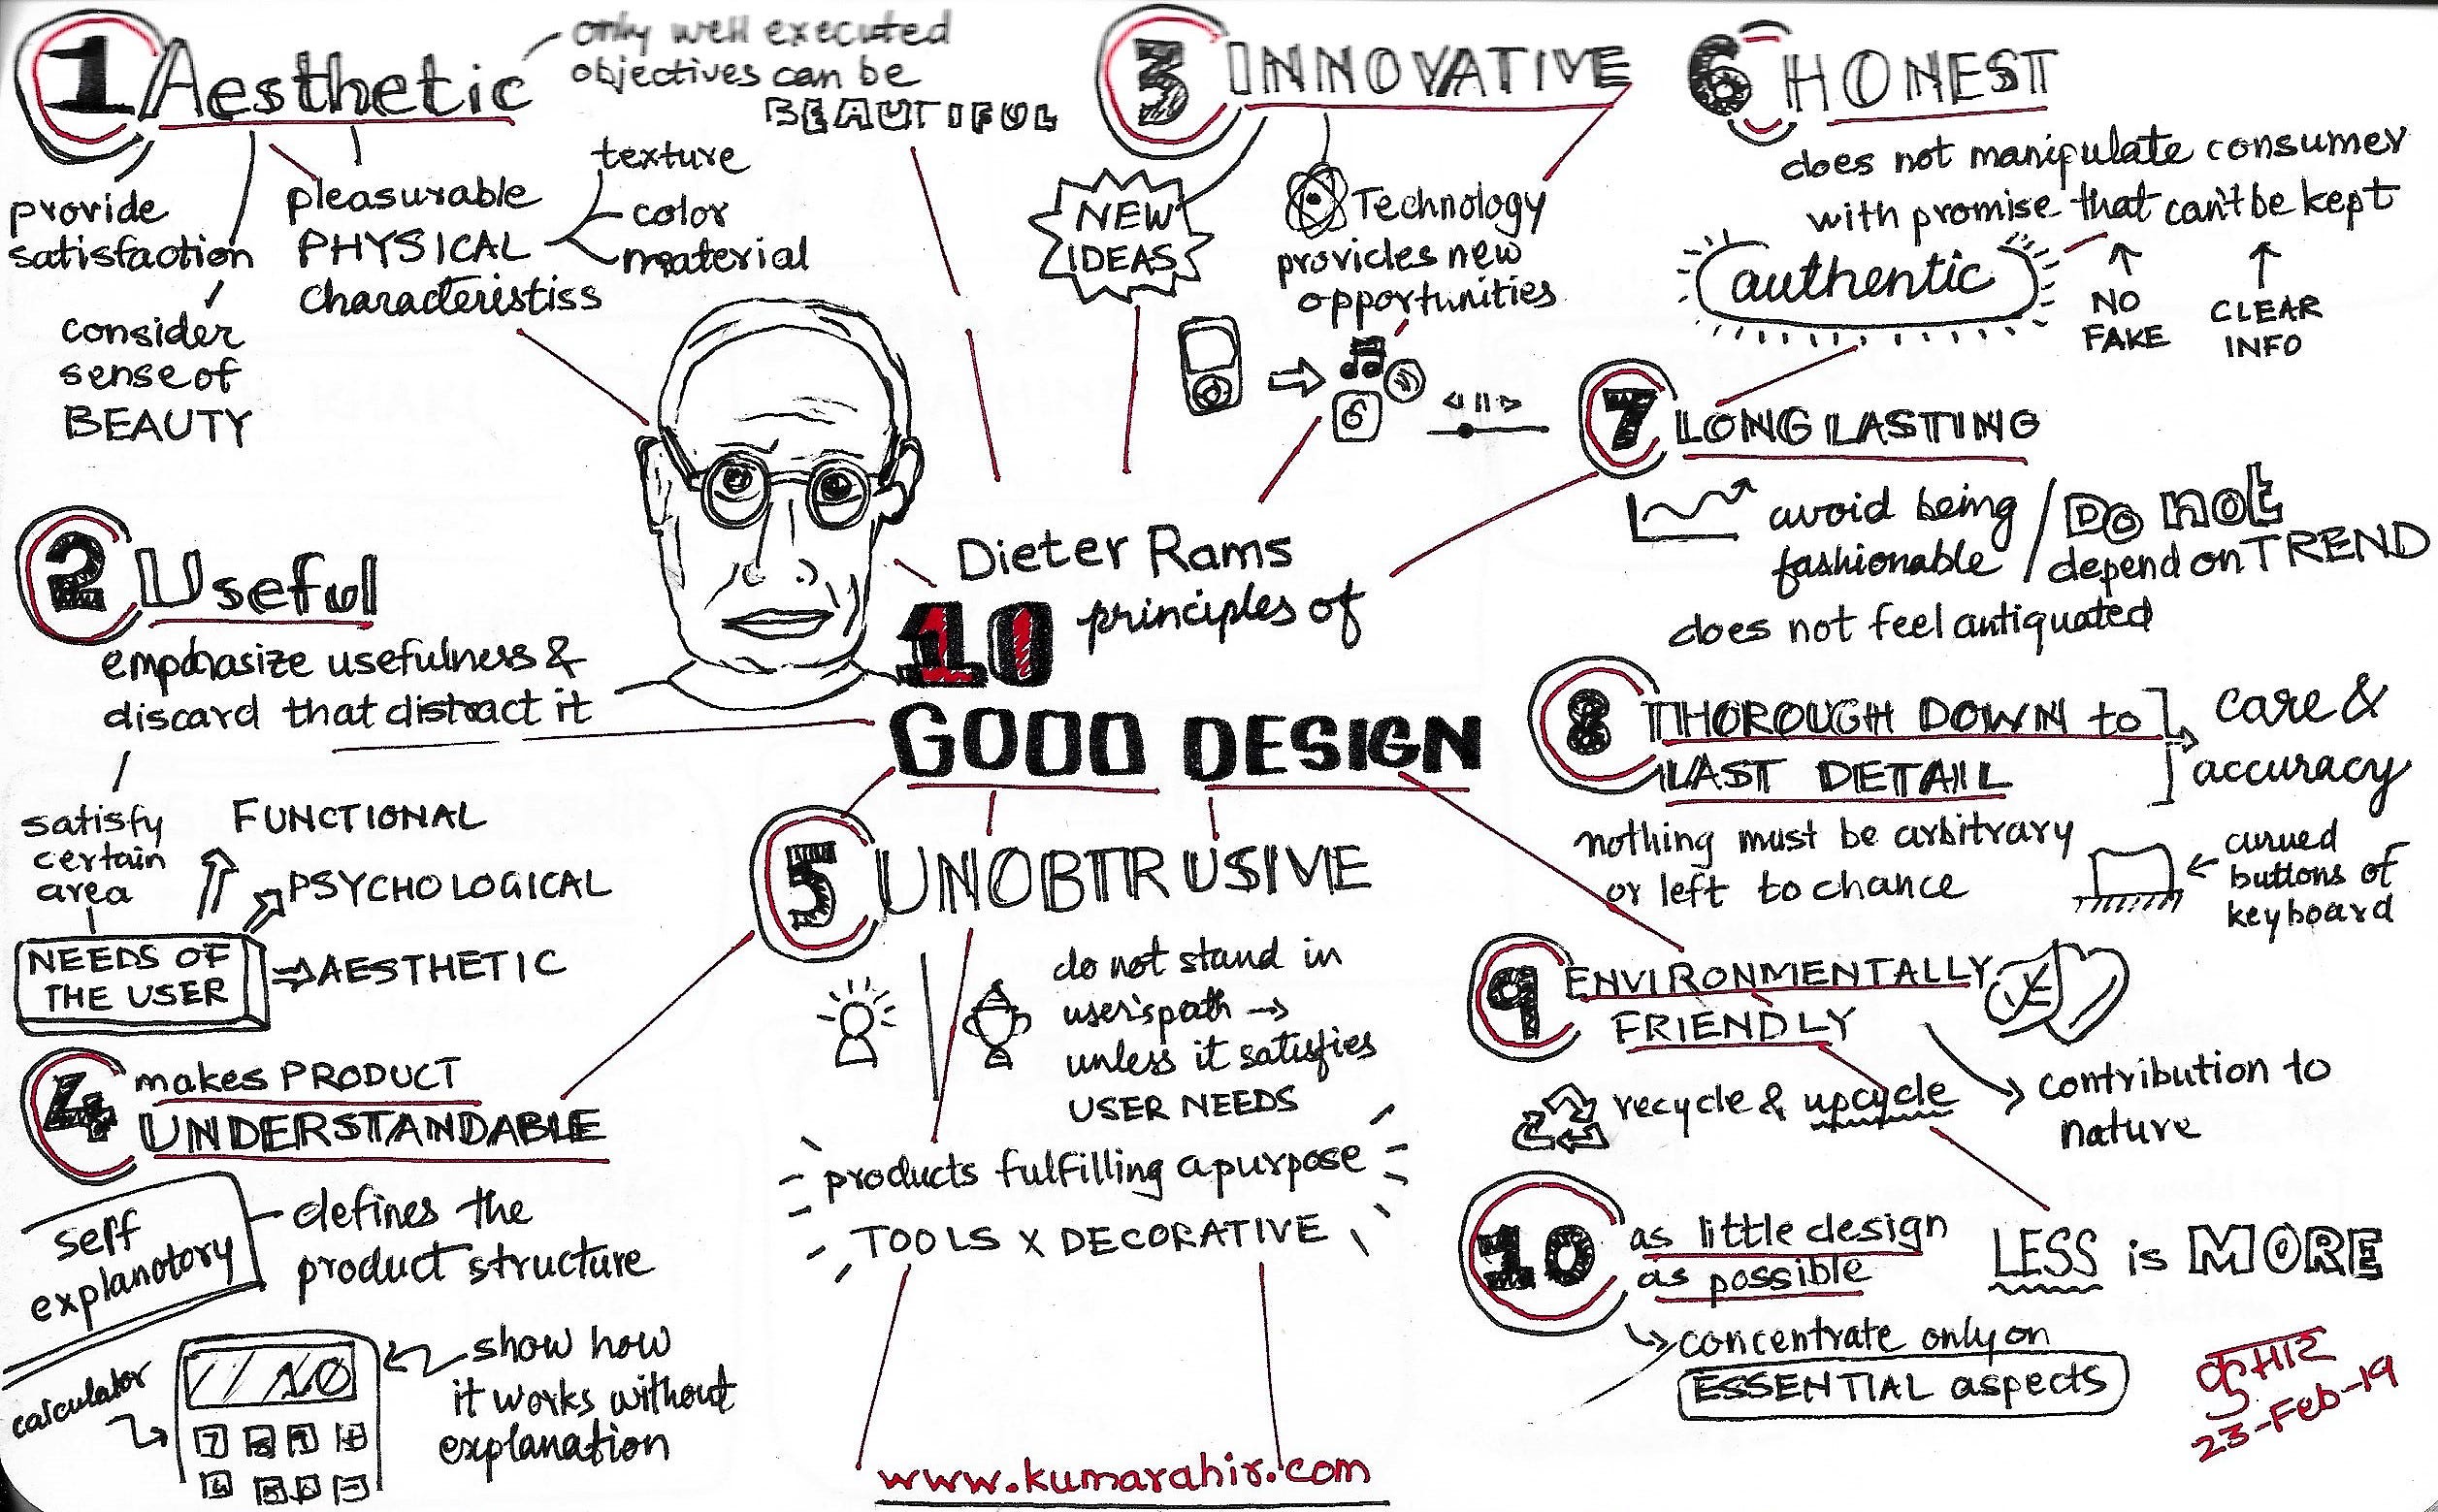 1 Aesthetic
only well executed
objectives can be
BEAUTIFUL
provide
satisfaction
consider
sense of
BEAUTY
pleasurable
PHYSICAL
characteristiss
texture
color
material
2 Useful
emphasize usefulness &
discard that distract it
satisfy
certain
area
NEEDS OF
THE USER
FUNCTIONAL
PSYCHOLOGICAL
AESTHETIC
3 INNOVATIVE
NEW
IDEAS
Technology
provides new
opportunities
Dieter Rams
10 principles of
GOOD DESIGN
4 makes PRODUCT
UNDERSTANDABLE
self
explanotory
defines the
product structure
calculator
10
7 8 9 +
show how
it works without
explanation
5 UNOBTRUSIVE
do not stand in
user's path →
unless it satisfies
USER NEEDS
products fulfilling a purpose
TOOLS x DECORATIVE
6 HONEST
does not manipulate consumer
with promise that can't be kept
authentic
NO
FAKE
CLEAR
INFO
7 LONG LASTING
avoid being
fashionable
/ Do not
depend on TREND
does not feel antiquated
8 THOROUGH DOWN to
LAST DETAIL
care &
accuracy
nothing must be arbitrary
or left to chance
curved
buttons of
keyboard
9 ENVIRONMENTALLY
FRIENDLY
recycle & upcycle
contribution to
nature
10 as little design
as possible
LESS is MORE
concentrate only on
ESSENTIAL aspects
कुमार
23-Feb-19
www.kumarahir.com